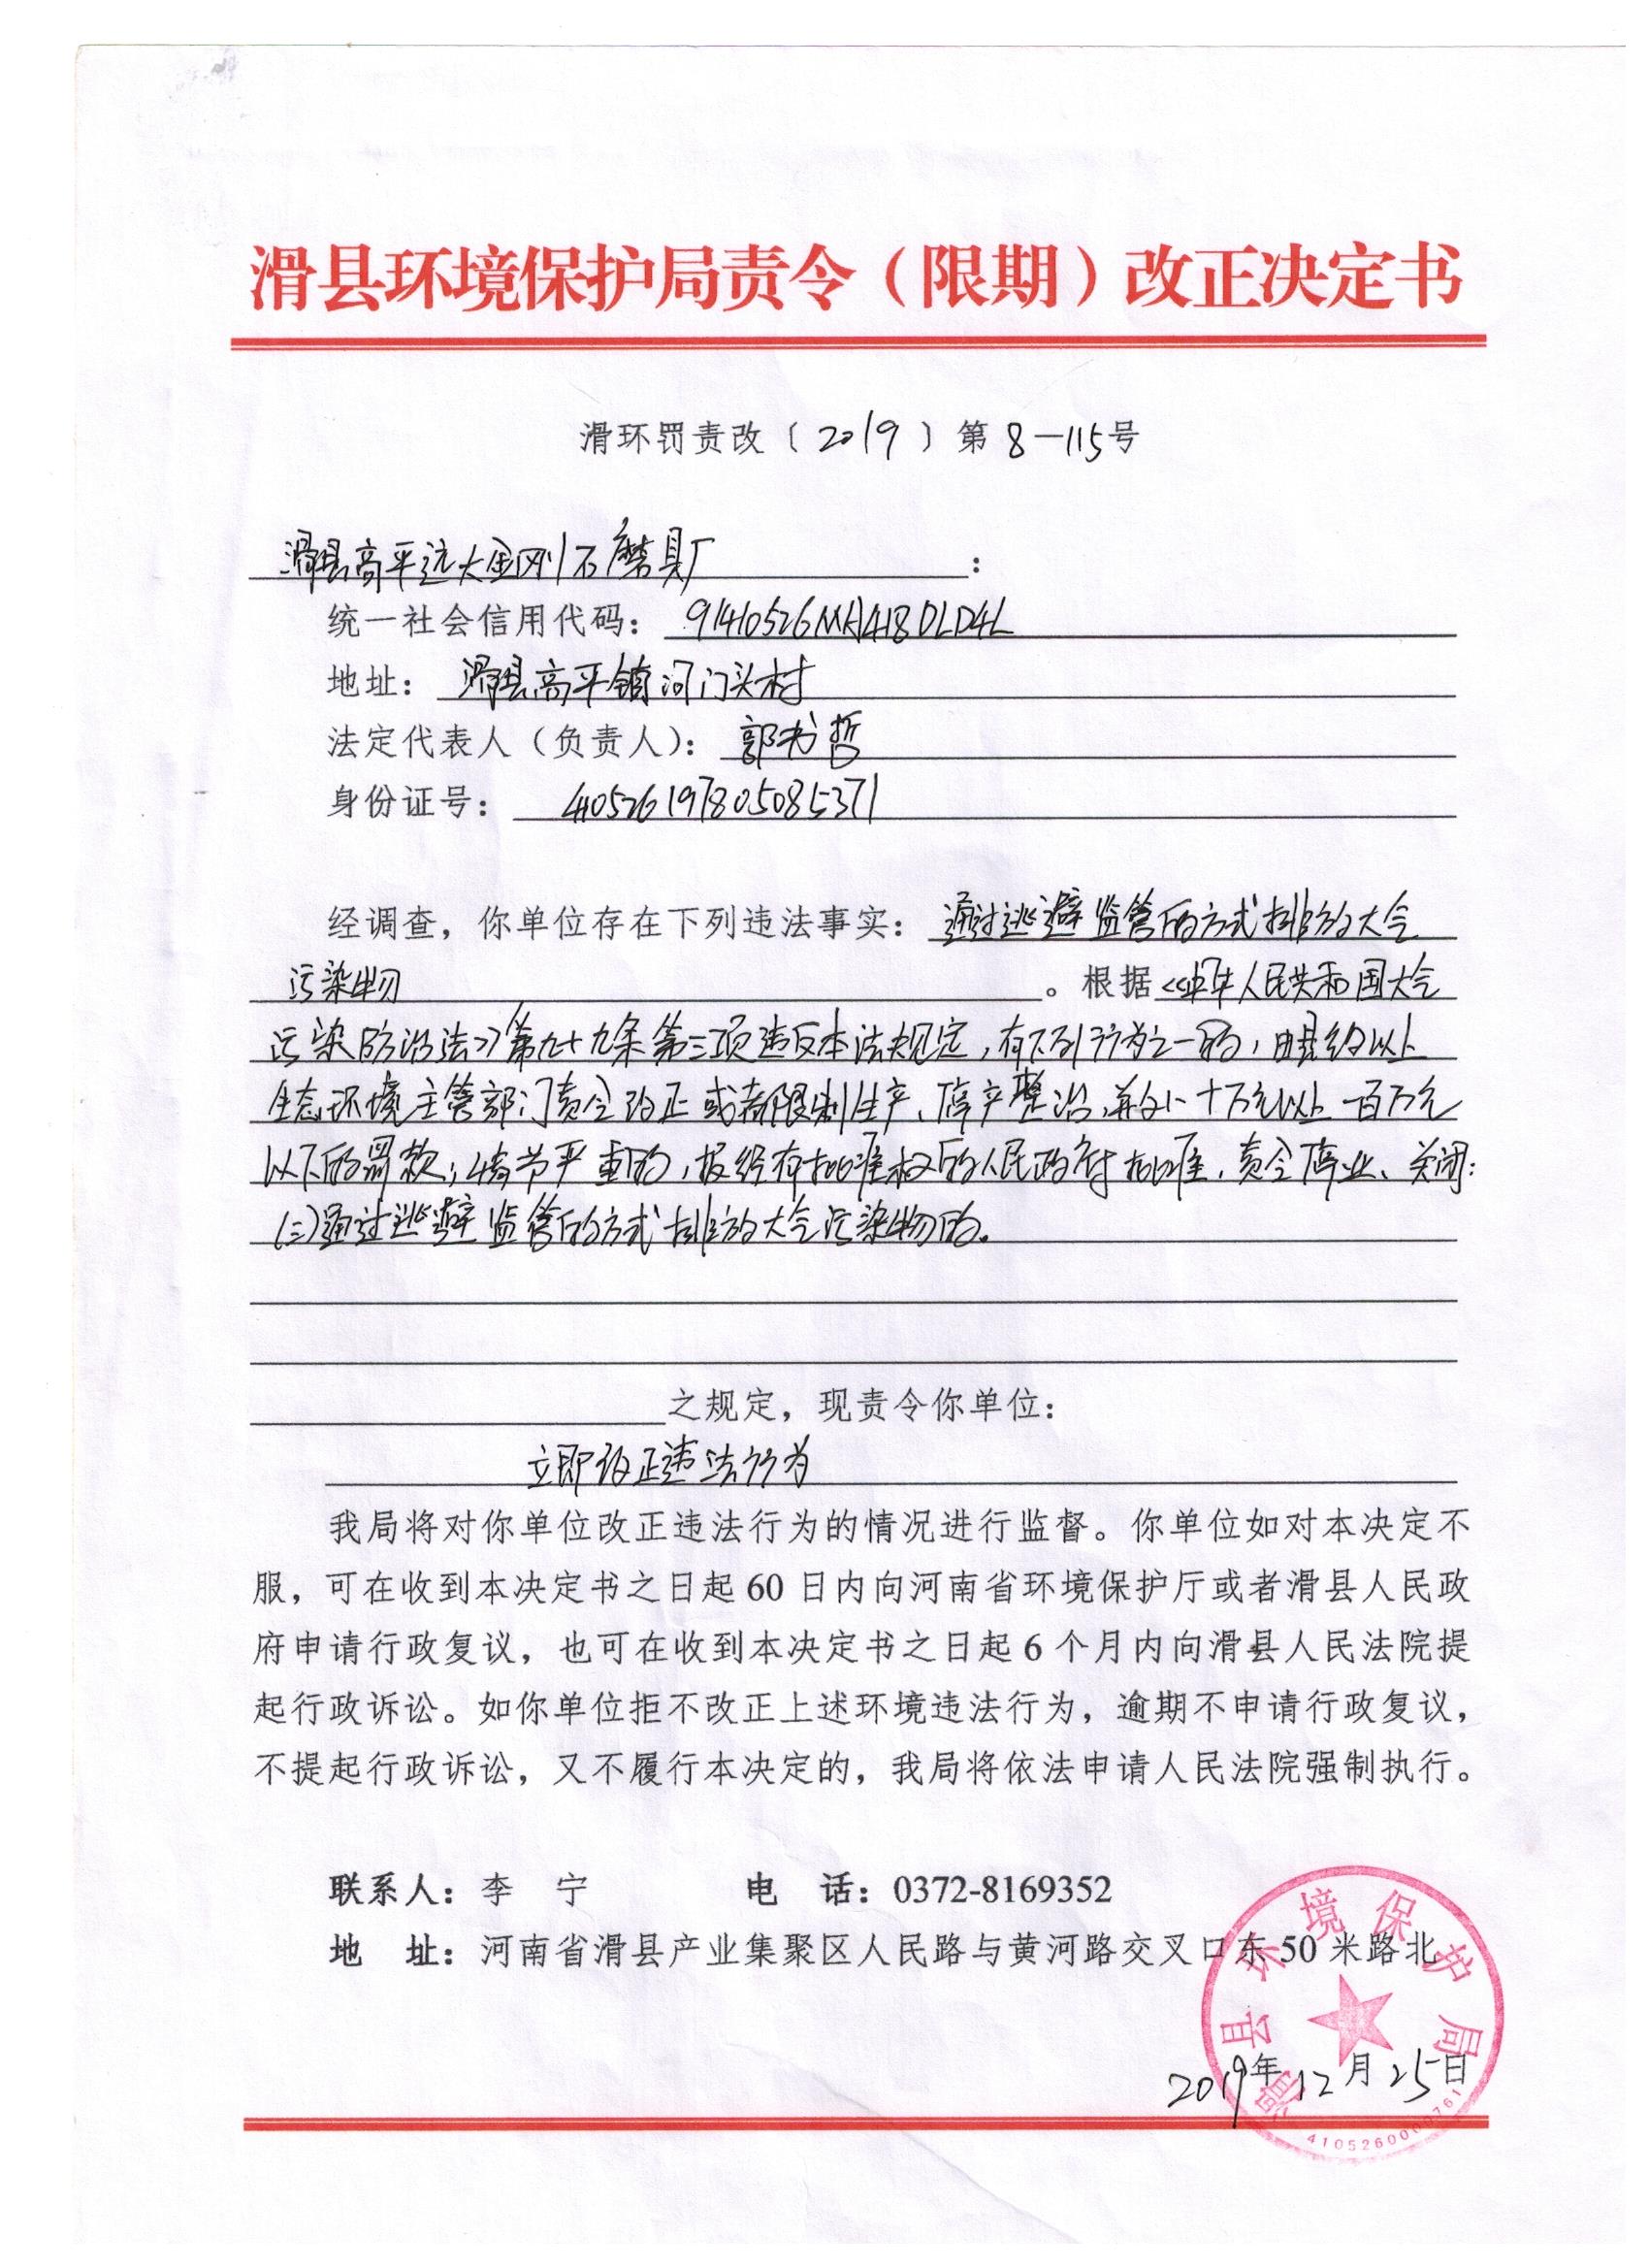 滑县环境保护局责令（限期）改正决定书
滑环罚责改〔2019〕第8-115号
滑县高平远大金刚石磨具厂：
统一社会信用代码：91410526MA418DLD4L
地址：滑县高平镇河门头村
法定代表人（负责人）：郭书哲
身份证号：410526197805085371
经调查，你单位存在下列违法事实：通过逃避监管的方式排放大气
污染物。根据《中华人民共和国大气
污染防治法》第九十九条第三项违反本法规定，有下列行为之一的，由县级以上
生态环境主管部门责令改正或者限制生产、停产整治，并处十万元以上一百万元
以下的罚款；情节严重的，报经有批准权的人民政府批准，责令停业、关闭：
(三)通过逃避监管的方式排放大气污染物的。
之规定，现责令你单位：
立即改正违法行为
我局将对你单位改正违法行为的情况进行监督。你单位如对本决定不
服，可在收到本决定书之日起60日内向河南省环境保护厅或者滑县人民政
府申请行政复议，也可在收到本决定书之日起6个月内向滑县人民法院提
起行政诉讼。如你单位拒不改正上述环境违法行为，逾期不申请行政复议，
不提起行政诉讼，又不履行本决定的，我局将依法申请人民法院强制执行。
联系人：李 宁 电 话：0372-8169352
地 址：河南省滑县产业集聚区人民路与黄河路交叉口东50米路北
滑县环境保护局
2019年12月25日